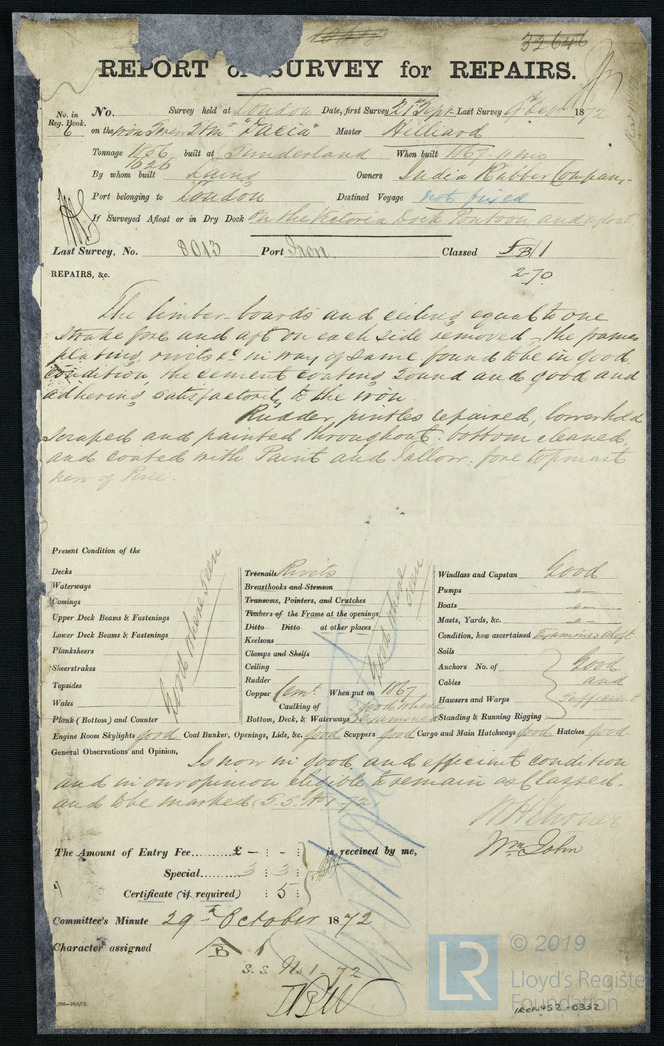 32646
REPORT of SURVEY for REPAIRS.
No. in Reg. Book. No. Survey held at London Date, first Survey 21st Sept Last Survey 9th 1872
6 on the Iron Screw Str "Dacia" Master Hilliard
Tonnage 1856 built at Sunderland When built 1867 - 11 mo
1626
By whom built Laing Owners India Rubber Company
Port belonging to London Destined Voyage not fixed
If Surveyed Afloat or in Dry Dock On the Victoria Dock Pontoon and afloat
Last Survey, No. 8013 Port Iron. Classed B 1
2-70
REPAIRS, &c.
The limber-boards and ceiling equal to one
strake fore and aft on each side removed - the frames
plating, rivets &c in way of same found to be in good
condition, the cement coating sound and good and
adhering satisfactorily to the iron.
Rudder, pintles repaired, lower hold
scraped and painted throughout: bottom cleaned
and coated with Paint and Tallow: fore topmast
new of Pine.
Present Condition of the
Decks
Waterways
Comings
Upper Deck Beams & Fastenings
Lower Deck Beams & Fastenings
Planksheers
Sheerstrakes
Topsides
Wales
Plank (Bottom) and Counter
Good where seen
Treenails Rivets
Breasthooks and Stemson
Transoms, Pointers, and Crutches
Timbers of the Frame at the openings
Ditto Ditto at other places
Keelsons
Clamps and Shelfs
Ceiling
Rudder
Copper Cemt. When put on 1867
Caulking of Good where
Bottom, Deck, & Waterways examined
Good where seen
Windlass and Capstan Good
Pumps
Boats
Masts, Yards, &c.
Condition, how ascertained Examined aloft
Sails
Anchors No. of
Cables
Hawsers and Warps
Standing & Running Rigging
Good
and
Sufficient
Engine Room Skylights good Coal Bunker, Openings, Lids, &c. good Scuppers good Cargo and Main Hatchways good Hatches good
General Observations and Opinion,
Is now in good and efficient condition
and in our opinion eligible to remain as Classed -
and to be marked S.S. No 1-72
Wm John
The Amount of Entry Fee......... £ - : - : is received by me,
Special......... 3 : 3 :
Certificate (if required) : 5 :
Committee's Minute 29th October 1872
Character assigned A 1
B
S.S. No 1-72
© 2019
LR
Lloyd's Register
Foundation
IRON457-0332